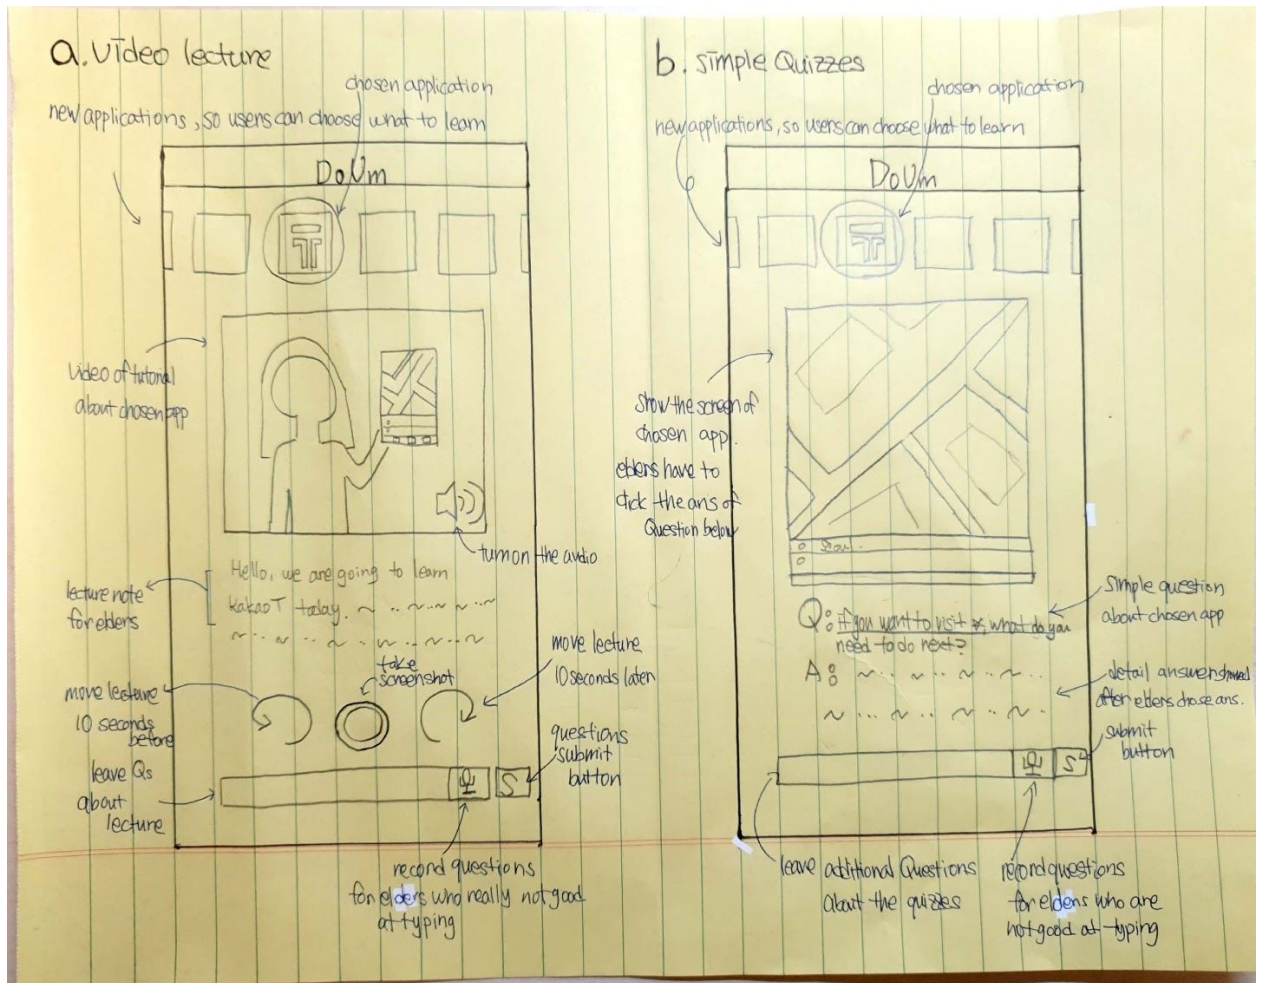 a. Video lecture
chosen application
new applications, so users can choose what to learn
DoUm
T
video of tutorial
about chosen app
turn on the audio
lecture note
for elders
Hello, we are going to learn
kakaoT today.
take
screenshot
move lecture
10 seconds
before
move lecture
10 seconds later
leave Qs
about
lecture
S
questions
submit
button
record questions
for elders who really not good
at typing
b. simple Quizzes
chosen application
new applications, so users can choose what to learn
DoUm
T
show the screen of
chosen app.
elders have to
click the ans of
Question below
simple question
about chosen app
Q: if you want to visit *, what do you
need to do next?
A:
detail answer showed
after elders chose ans.
submit
button
S
leave additional Questions
about the quizzes
record questions
for elders who are
not good at typing